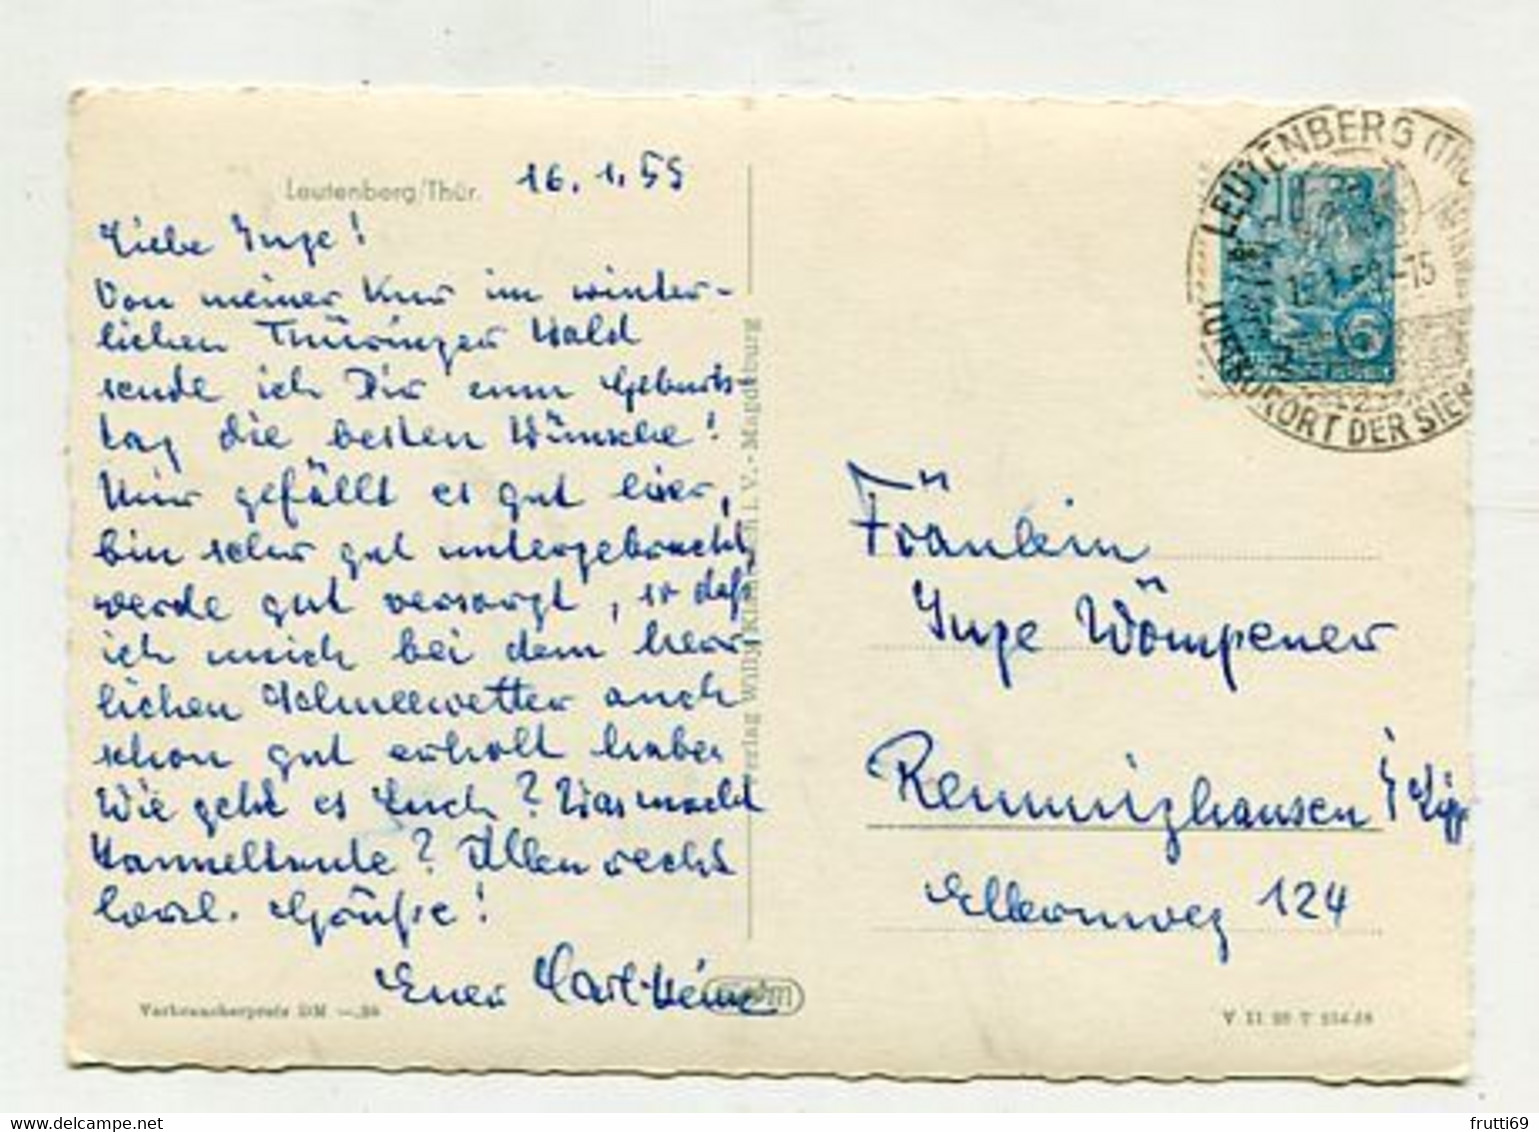 Leutenberg/Thür.
16.1.59
Liebe Inge!
Von meiner Kur im winter-
lichen Thüringer Wald
sende ich Dir zum Geburts-
tag die besten Wünsche!
Mir gefällt es gut hier,
bin sehr gut untergebracht,
werde gut versorgt, so daß
ich mich bei dem herr
lichen Schneewetter auch
schon gut erholt habe.
Wie geht es Euch? Was macht
Hanneltraute? Allen recht
herzl. Grüße!
Euer Karl-Heinz
Verbraucherpreis DM
Verlag Willy i. V. - Magdeburg
LEUTENBERG (THÜ
KURORT DER SIEB
-15
6
Fräulein
Inge Wömpener
Remmighausen / Lipp
Ellernweg 124
V 11 28 T
www.delcampe.net
frutti69